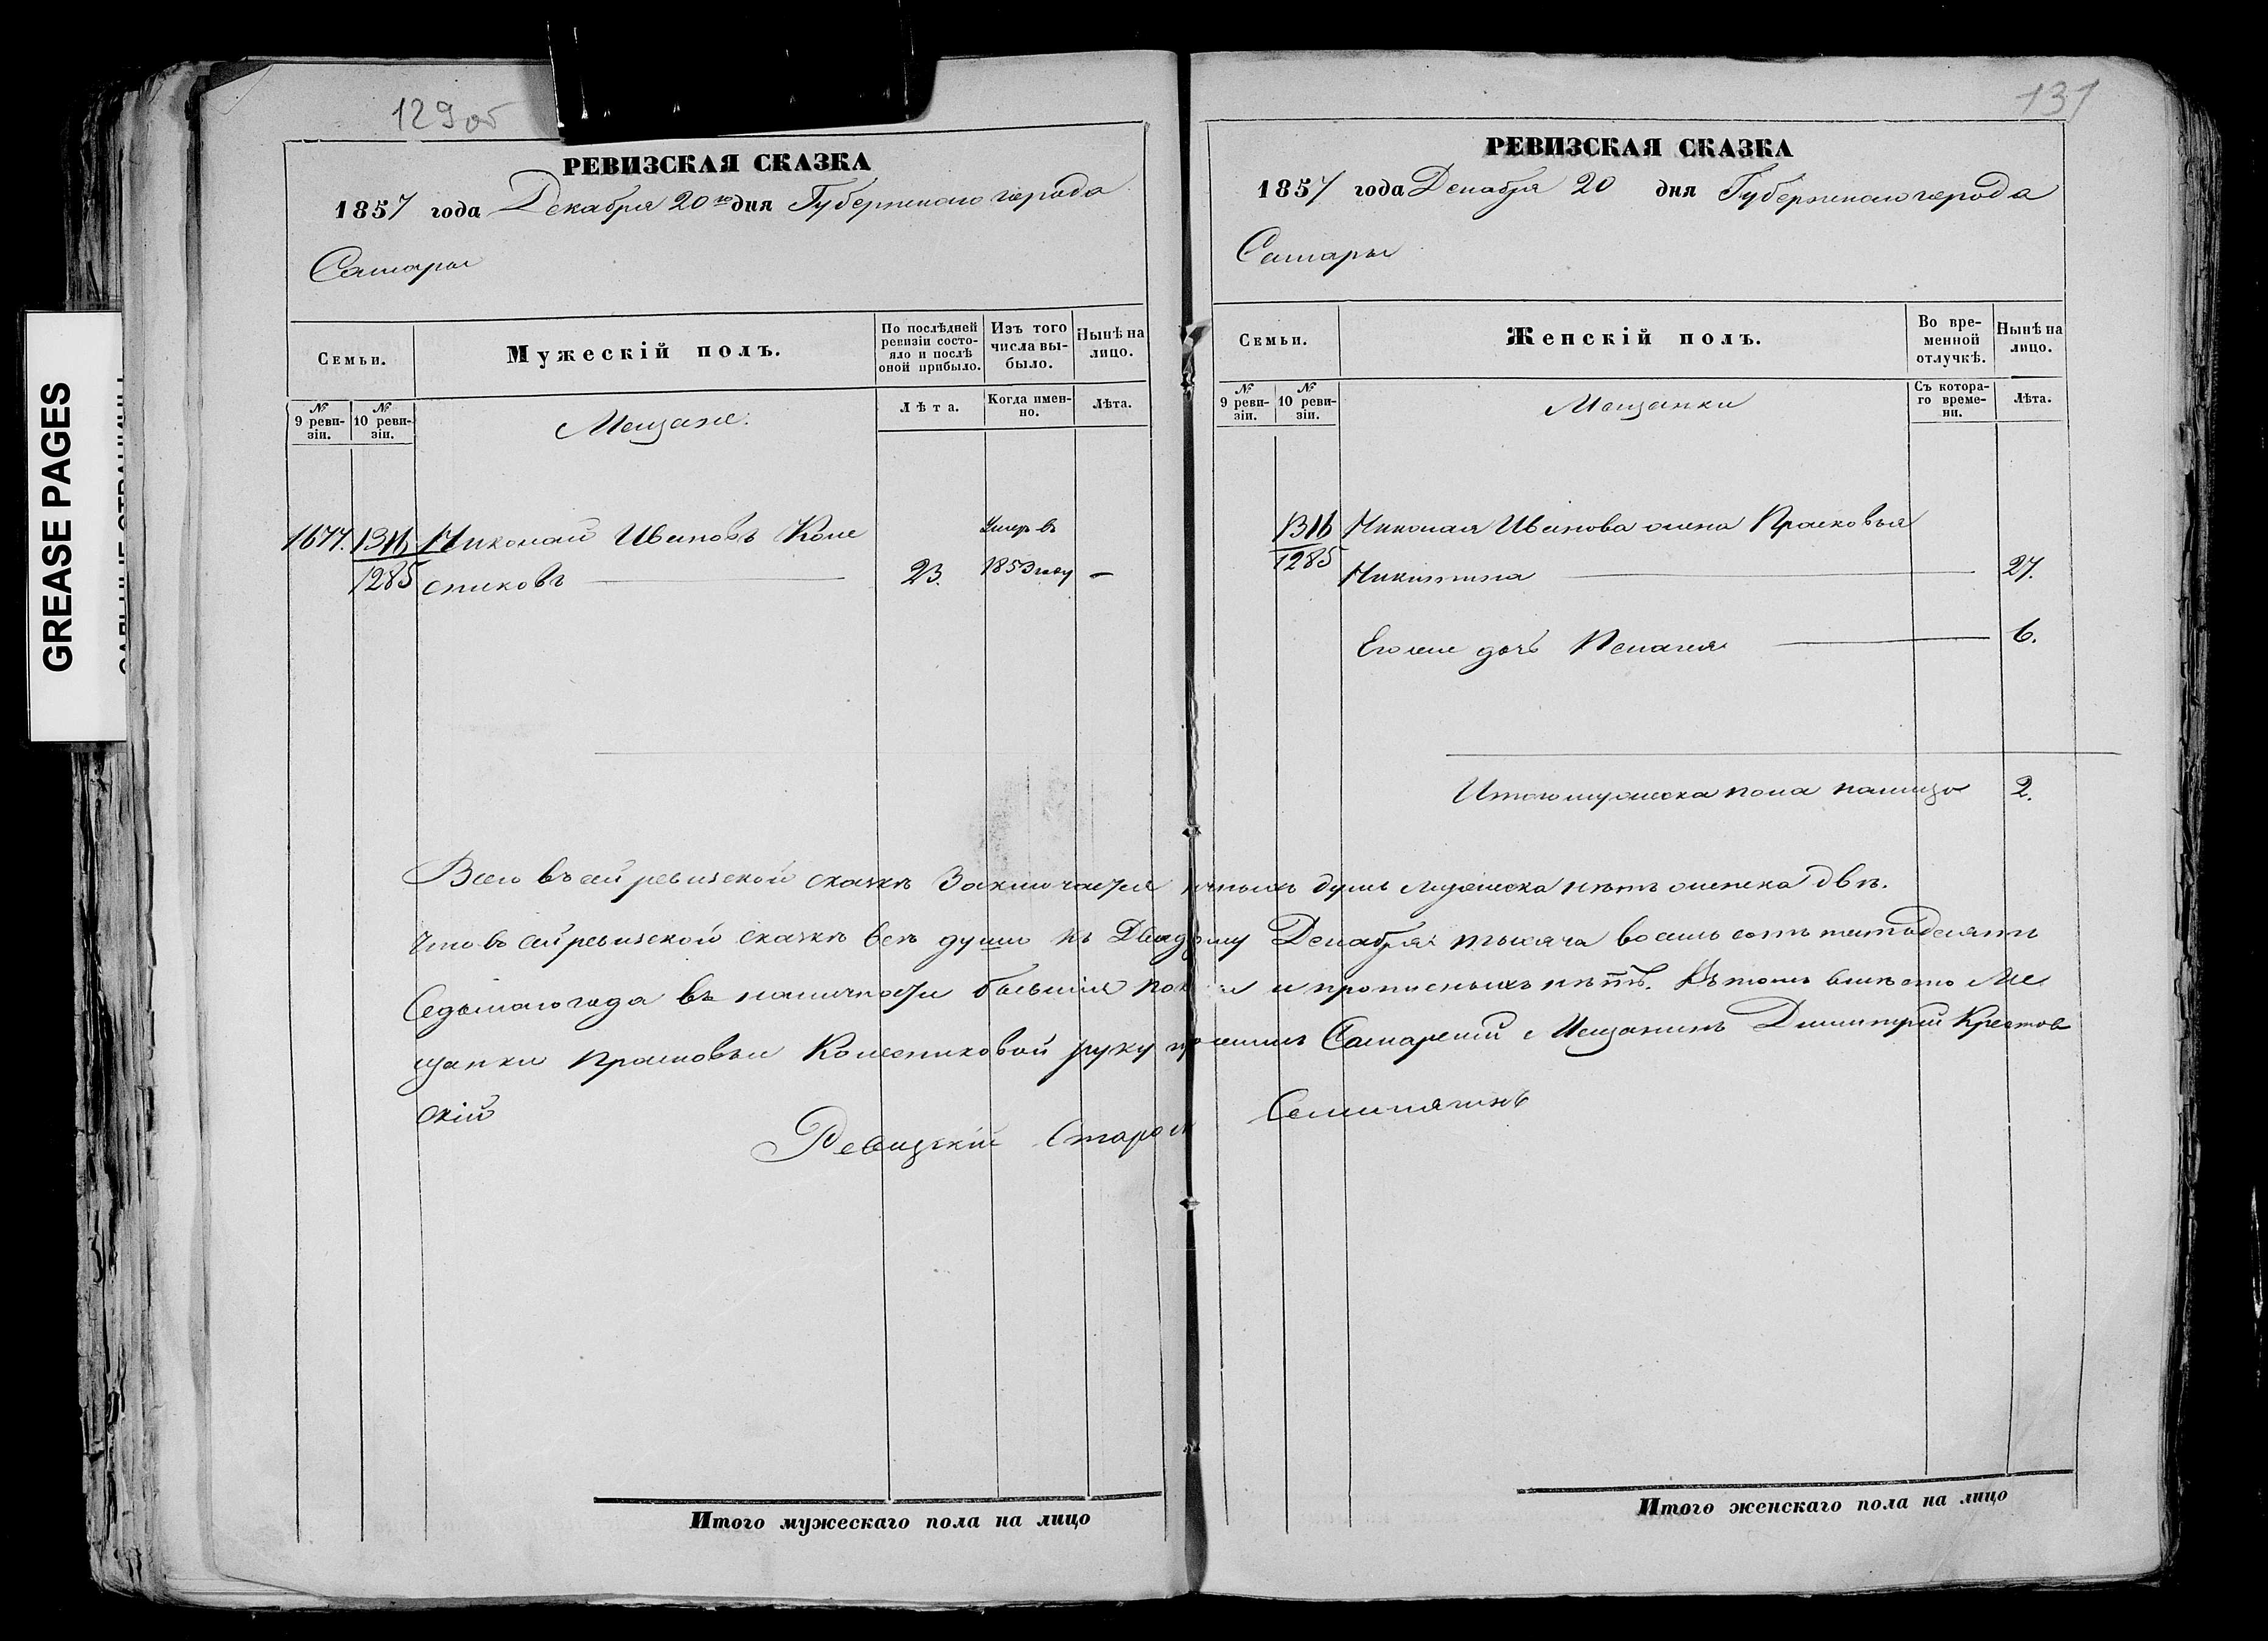 129об
РЕВИЗСКАЯ СКАЗКА
1857 года Декабря 20го дня Губернскаго города
Самары
Семьи.
Мужескій полъ.
По послѣдней ревизіи состояло и послѣ оной прибыло.
Изъ того числа выбыло.
Нынѣ на лицо.
№ 9 ревизіи.
№ 10 ревизіи.
Мещане.
Лѣта.
Когда именно.
Лѣта.
1677. 1316 Николай Ивановъ Коле
Умеръ въ
1285 сниковъ 23. 1853 году —
Всего въ сей ревизской сказкѣ Заключается
Что въ сей ревизской сказкѣ всѣ души къ
Седьмаго года въ наличности бывшія
щанки Прасковьи Колесниковой руку
скій
Ревизскій Старо
Итого мужескаго пола на лицо
131
РЕВИЗСКАЯ СКАЗКА
1857 года Декабря 20 дня Губернскаго города
Самары
Семьи.
Женскій полъ.
Во временной отлучкѣ.
Нынѣ на лицо.
№ 9 ревизіи.
№ 10 ревизіи.
Мещанки
Съ котораго времени.
Лѣта.
1316 Николая Иванова жена Прасковья
1285 Никитина 27.
Его же дочь Пелагея 6.
Итого женска пола налицо 2.
душъ мужеска нѣтъ женска двѣ.
Декабря тысяча восемь сотъ пятьдесятъ
и прописныхъ нѣтъ. Въ томъ вмѣсто Ме
Самарский Мещанинъ Димитрий Крестов
Итого женскаго пола на лицо
GREASE PAGES